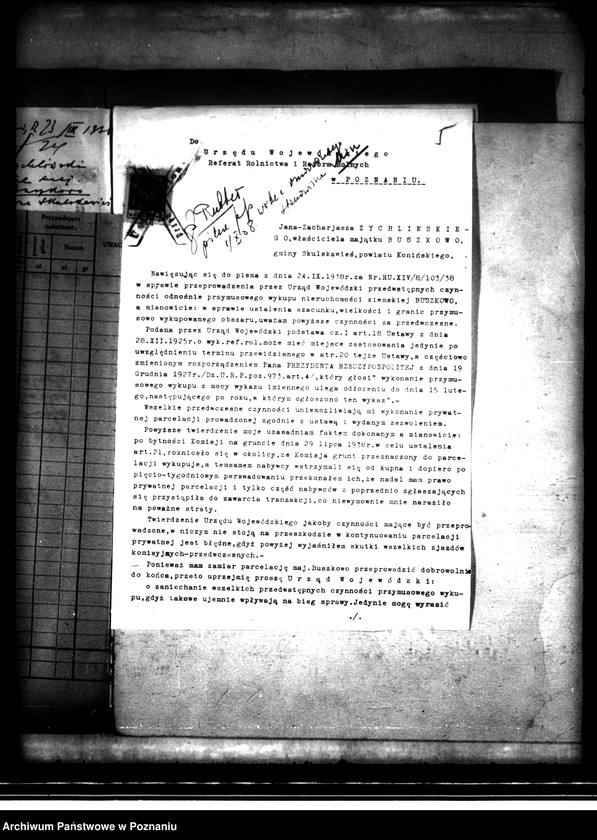 5
Do
Urzędu Wojewódzkiego
Referat Rolnictwa i Reform Rolnych
w POZNANIU.
Jana-Zacharjasza ZYCHLINSKIE-
GO,właściciela majątku BUSZKOWO,
gminy Skulskawieś,powiatu Konińskiego.
Nawięzując się do pisma z dnia 24.IX.1938r.za Nr.RU.XIV/8/103/38
w sprawie przeprowadzenia przez Urząd Wojewódzki przedwstępnych czyn-
ności odnośnie przymusowego wykupu nieruchomości ziemskiej BUSZKOWO,
a mianowicie: w sprawie ustalenia szacunku,wielkości i granic przymu-
sowo wykupowanego obszaru,uważam powyższe czynności za przedwczesne.
Podana przez Urząd Wojewódzki podstawa cz.I art.18 Ustawy z dnia
28.XII.1925r.o wyk.ref.rol.może mieć miejsce zastosowania jedynie po
uwzględnieniu terminu przewidzianego w str.20 tejże Ustawy,a częściowo
zmienionym rozporządzeniem Pana PREZYDENTA RZECZYPOSPOLITEJ z dnia 19
Grudnia 1927r./Dz.U.R.P.poz.973.art.4/,który głosi" wykonanie przymu-
sowego wykupu z mocy wykazu imiennego ulega odłożeniu do dnia 15 lute-
go,następującego po roku,w którym ogłoszono ten wykaz".-
Wszelkie przedwczesne czynności uniemożliwiają mi wykonanie prywat-
nej parcelacji prowadzonej zgodnie z ustawą i wydanym zezwoleniem.
Powyższe twierdzenie moje uzasadniam faktem dokonanym a mianowicie:
po bytności Komisji na gruncie dnia 29 lipca 1938r.w celu ustalenia
art.21,rozniosło się w okolicy,że Komisja grunt przeznaczony do parce-
lacji wykupuje,a temsamem nabywcy wstrzymali się od kupna i dopiero po
pięcio-tygodniowym perswadowaniu przekonałem ich,że nadal mam prawo
prywatnej parcelacji i tylko część nabywców z poprzednio zgłaszających
się przystąpiła do zawarcia tranzakcji,co niewymownie mnie naraziło
na poważne straty.
Twierdzenie Urzędu Wojewódzkiego jakoby czynności mające być przepro-
wadzone,w niczym nie stoją na przeszkodzie w kontynuowaniu parcelacji
prywatnej jest błędne,gdyż powyżej wyjaśniłem skutki wszelkich zjazdów
komisyjnych-przedwczesnych.-
Ponieważ mam zamiar parcelację maj.Buszkowo przeprowadzić dobrowolnie
do końca,przeto uprzejmię proszę Urząd Wojewódzki:
o zaniechanie wszelkich przedwstępnych czynności przymusowego wyku-
pu,gdyż takowe ujemnie wpływają na bieg sprawy.Jedynie mogę wyrazić
./.
Przypadająca
należność:
Razem
UWAG
zł
zł
gr
Archiwum Państwowe w Poznaniu